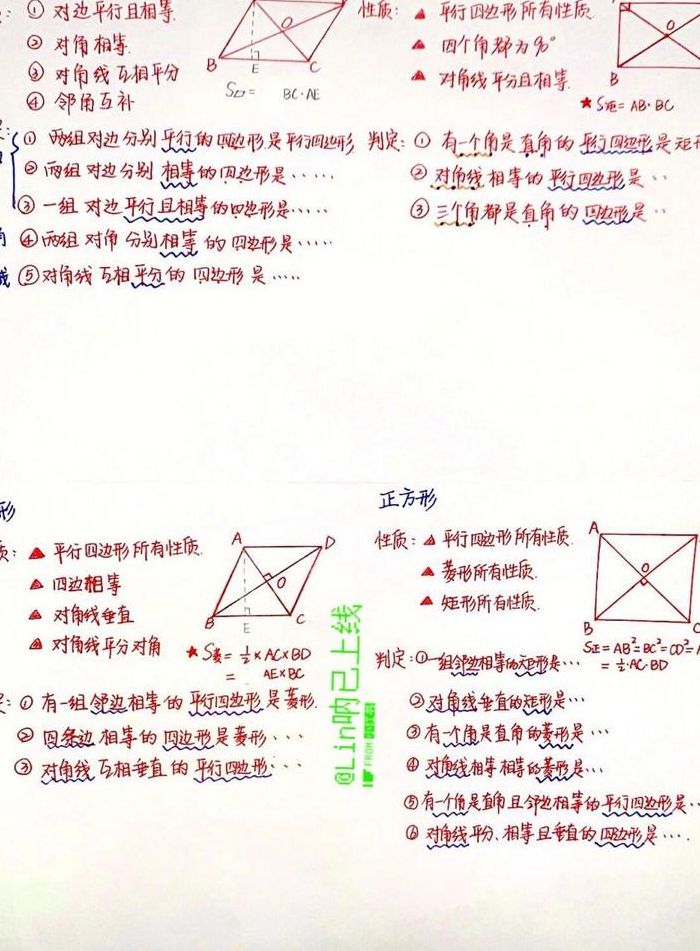 ① 对边平行且相等.
② 对角相等.
③ 对角线互相平分
④ 邻角互补
O
B
E
C
S▱= BC·AE
① 两组对边分别平行的四边形是平行四边形
② 两组对边分别相等的四边形是······
③ 一组对边平行且相等的四边形是·····
④ 两组对角分别相等的四边形是·····
⑤ 对角线互相平分的四边形是·····
性质: ▲ 平行四边形所有性质.
▲ 四个角都为90°
▲ 对角线平分且相等.
O
B
★ S矩= AB·BC
判定: ① 有一个角是直角的平行四边形是矩形
② 对角线相等的平行四边形是··
③ 三个角都是直角的四边形是··
形
质: ▲ 平行四边形所有性质.
▲ 四边相等
▲ 对角线垂直
▲ 对角线平分对角
A
D
O
B
E
C
★ S菱= ½×AC×BD
= AE×BC
① 有一组邻边相等的平行四边形是菱形.
② 四条边相等的四边形是菱形···
③ 对角线互相垂直的平行四边形···
@Lin呐已上线
FROM
正方形
性质: ▲ 平行四边形所有性质.
▲ 菱形所有性质.
▲ 矩形所有性质.
A
O
B
C
S正=AB²=BC²=CD²=A
= ½·AC·BD
判定: ① 一组邻边相等的矩形是···
② 对角线垂直的矩形是···
③ 有一个角是直角的菱形是···
④ 对角线相等相等的菱形是···
⑤ 有一个角是直角且邻边相等的平行四边形是··
⑥ 对角线平分、相等且垂直的四边形是····